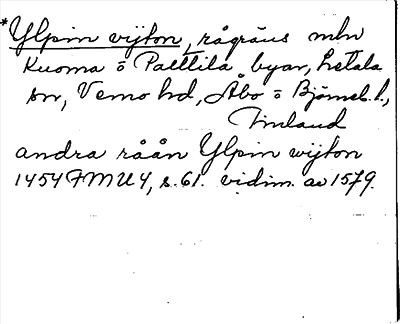 *Ylpin wijton, rågräns mln
Kuoma o Palttila byar, Letala
sn, Vemo hd, Åbo o Björneb. l.,
Finland
andra råån Ylpin wijton
1454 FMU 4, s. 61. vidim. av 1579.